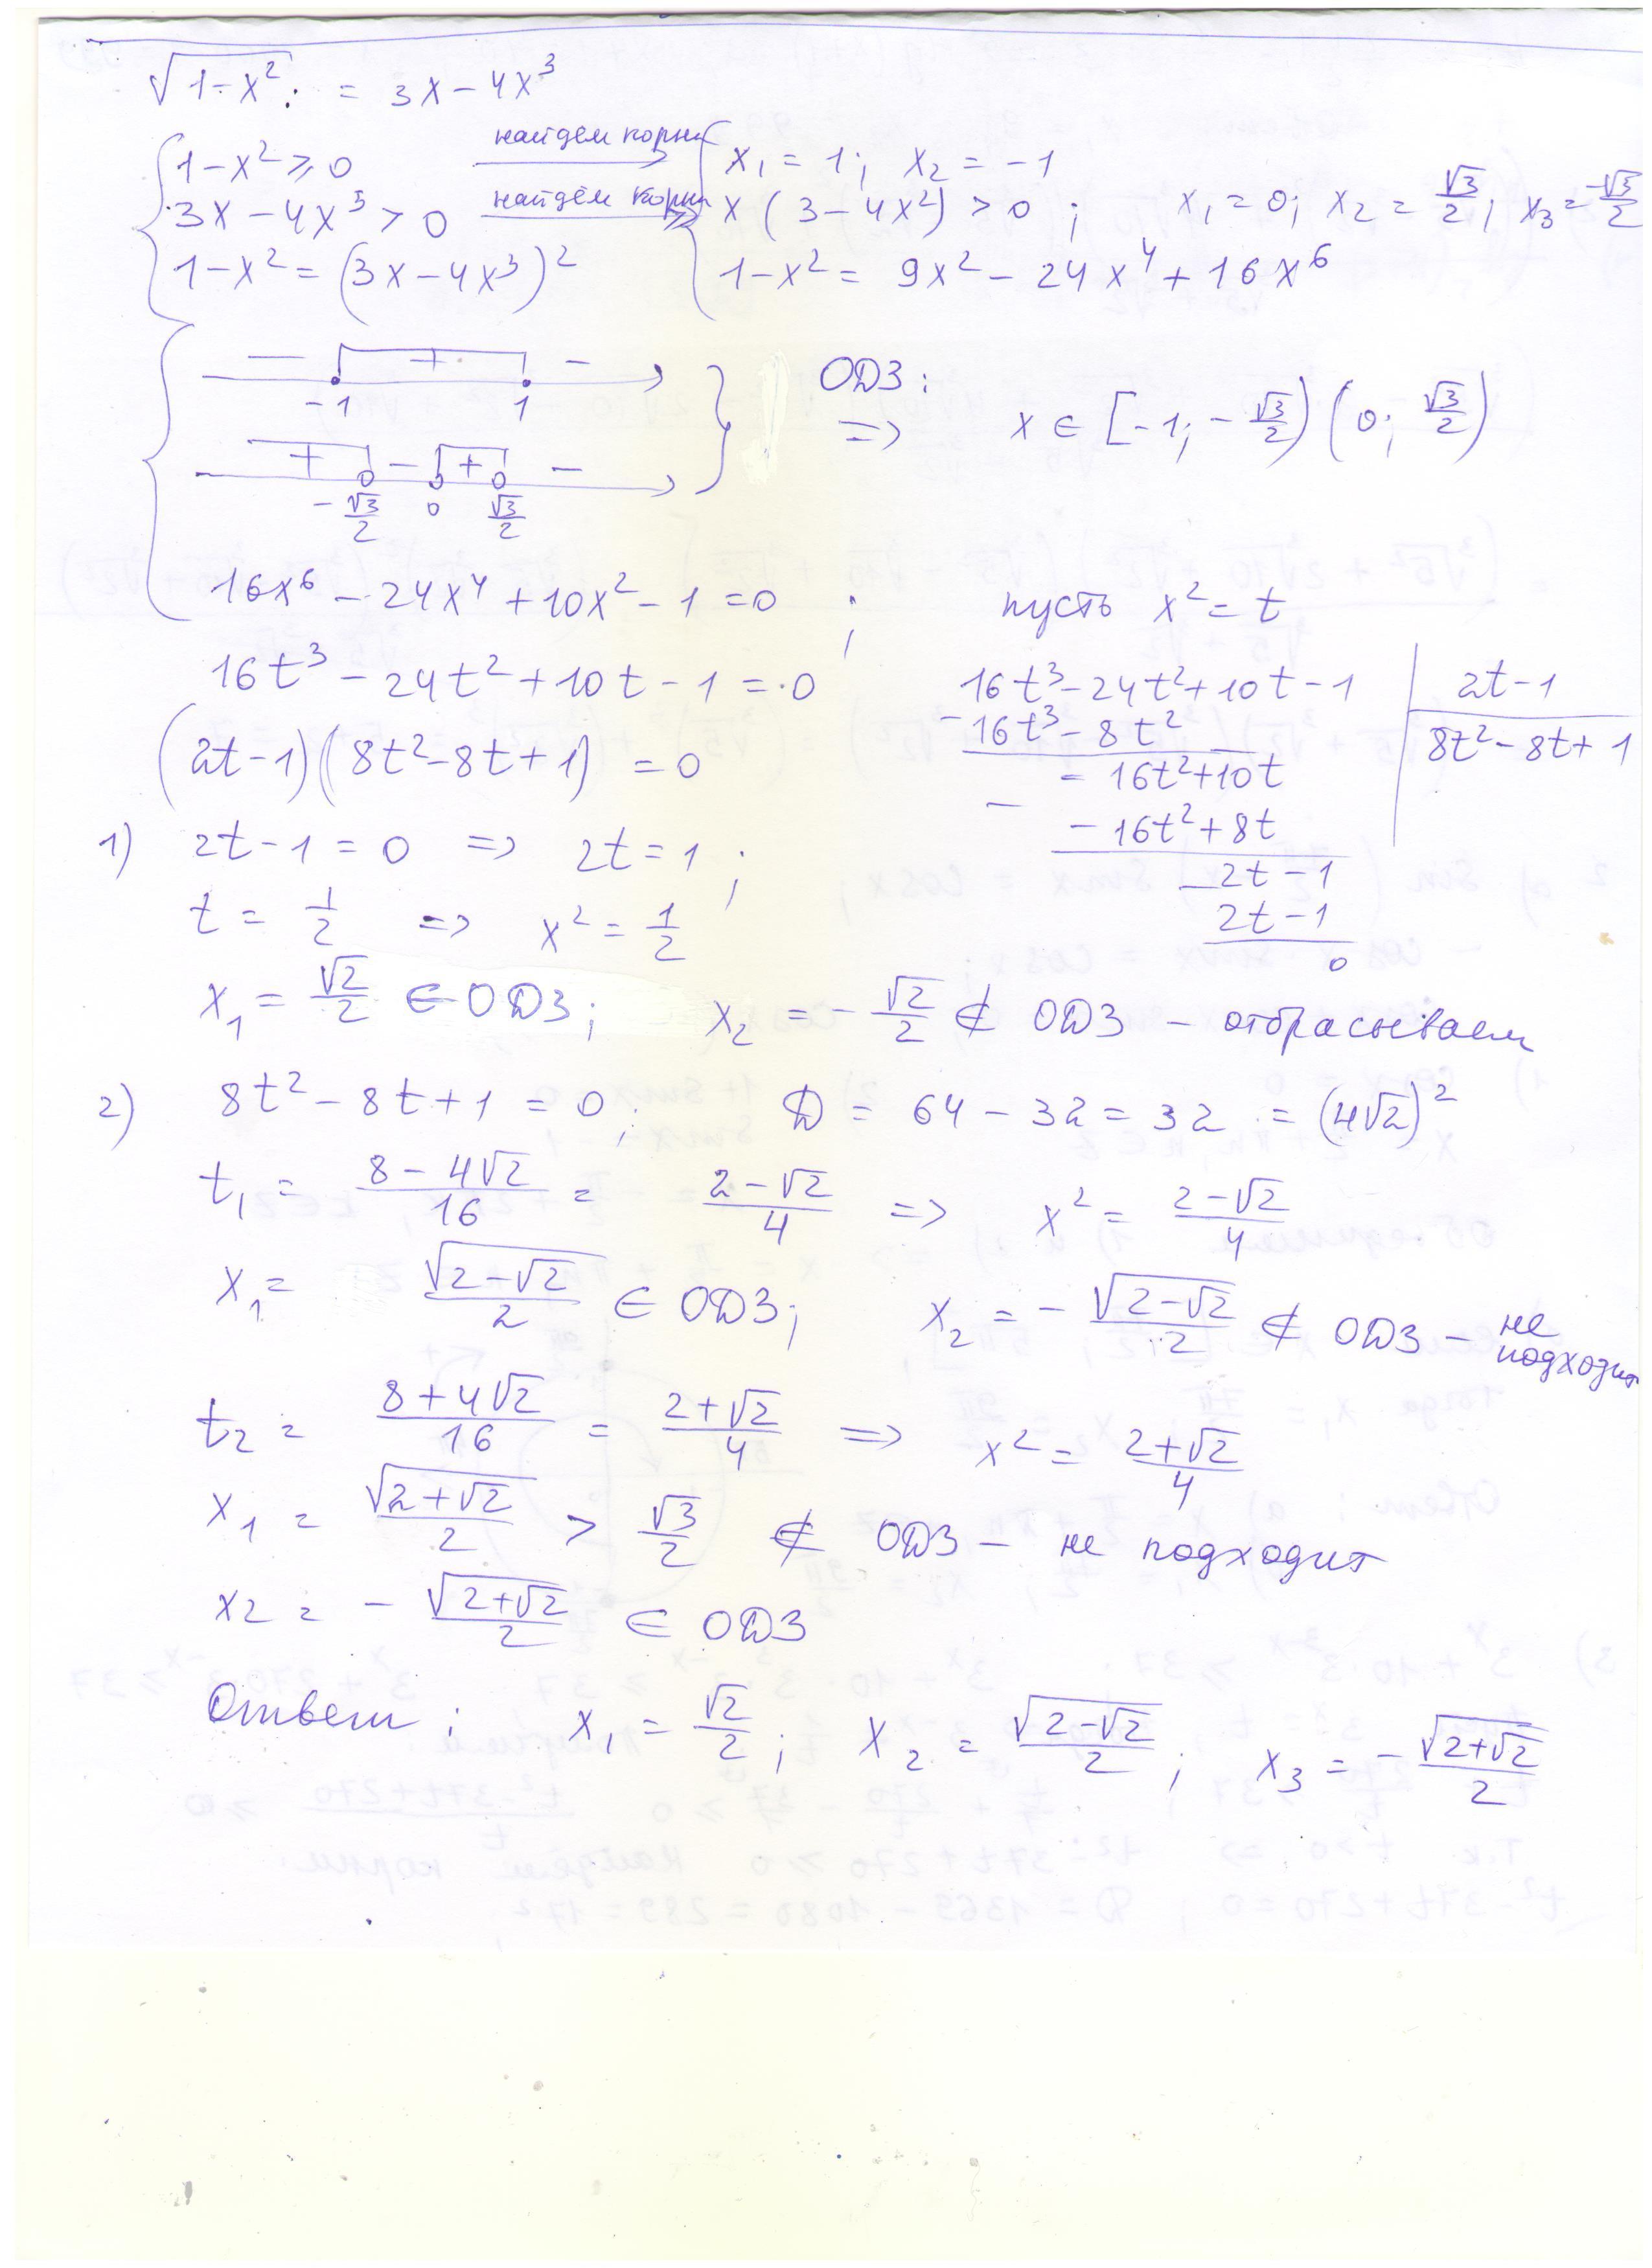 √(1-x²) = 3x - 4x³
{ 1-x² ⩾ 0 найдём корни → { x₁ = 1; x₂ = -1
3x - 4x³ > 0 найдём корни ⇒ x (3-4x²) > 0; x₁ = 0; x₂ = √3/2; x₃ = -√3/2
1-x² = (3x-4x³)² 1-x² = 9x² - 24x⁴ + 16x⁶
{ — + - ОДЗ:
-1 1 ⇒ x ∈ [-1; -√3/2) (0; √3/2)
+ - + -
-√3/2 0 √3/2
16x⁶ - 24x⁴ + 10x² - 1 = 0 ; пусть x² = t
16t³ - 24t² + 10t - 1 = 0
(2t-1)(8t²-8t+1) = 0
16t³-24t²+10t-1 | 2t-1
-16t³-8t² | 8t²-8t+1
-16t²+10t
-
-16t²+8t
_2t-1
2t-1
0
1) 2t-1 = 0 ⇒ 2t = 1;
t = 1/2 ⇒ x² = 1/2
x₁ = √2/2 ∈ ОДЗ; x₂ = -√2/2 ∉ ОДЗ - отбрасываем
2) 8t² - 8t + 1 = 0; D = 64 - 32 = 32 = (4√2)²
t₁ = (8-4√2)/16 = (2-√2)/4 ⇒ x² = (2-√2)/4
x₁ = √(2-√2)/2 ∈ ОДЗ; x₂ = -√(2-√2)/2 ∉ ОДЗ - не подходит
t₂ = (8+4√2)/16 = (2+√2)/4 ⇒ x² = (2+√2)/4
x₁ = √(2+√2)/2 > √3/2 ∉ ОДЗ - не подходит
x₂ = -√(2+√2)/2 ∈ ОДЗ
Ответ: x₁ = √2/2; x₂ = √(2-√2)/2; x₃ = -√(2+√2)/2